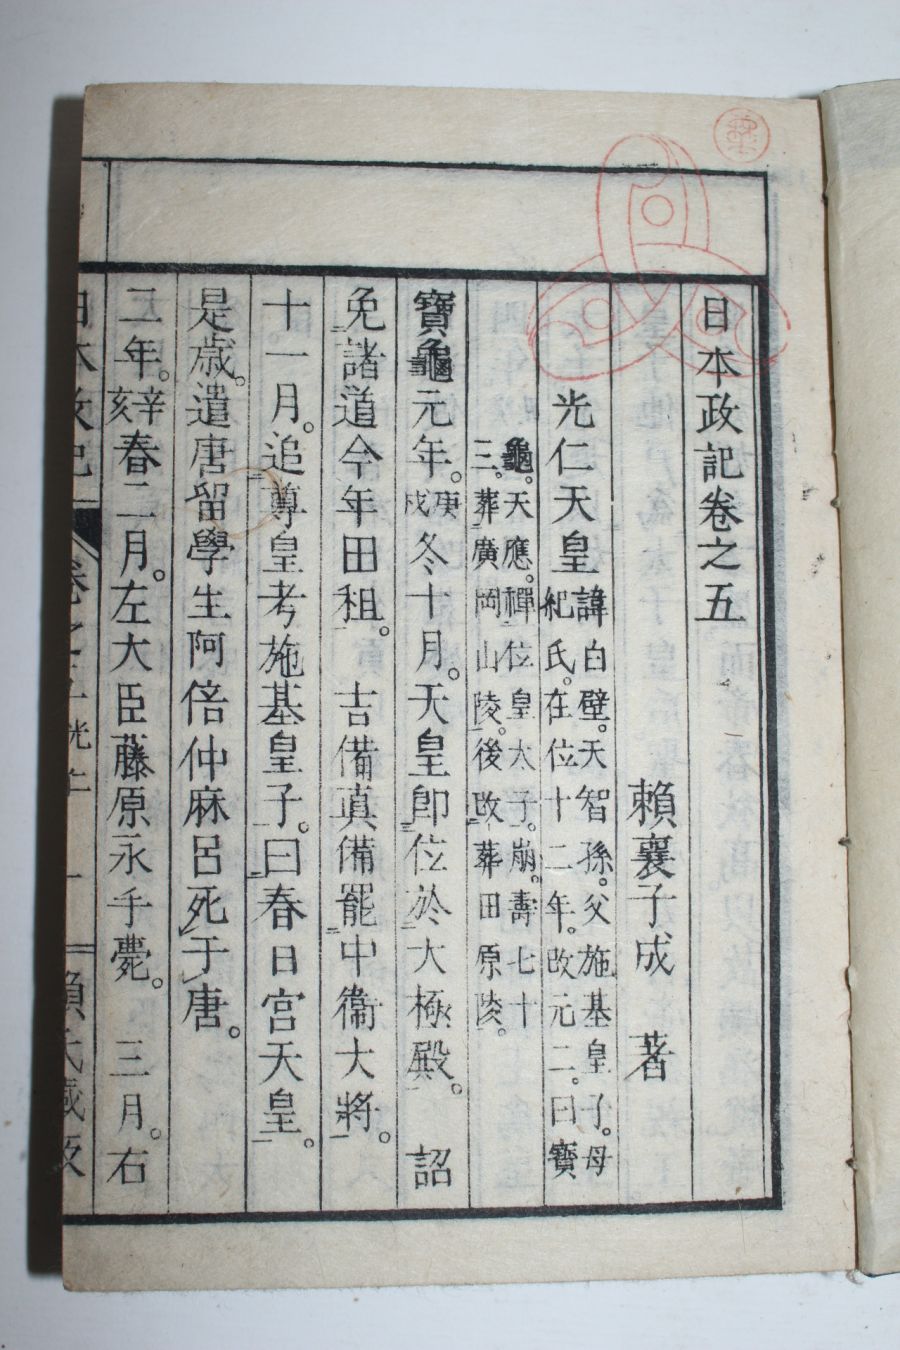 日本政記卷之五
賴襄子成　著
光仁天皇 諱白壁。天智孫。父施基皇子。母
紀氏。在位十二年。改元二。曰寶
龜。天應。禪位皇太子。崩。壽七十
三。葬廣岡山陵。後改葬田原陵。
寶龜元年。庚戌冬十月。天皇卽位於大極殿。　詔
免諸道今年田租。　吉備眞備罷中衞大將。
十一月。追尊皇考施基皇子。曰春日宮天皇。
是歲。遣唐留學生阿倍仲麻呂死于唐。
二年。辛亥春二月。左大臣藤原永手薨。　三月。右
日本政記 卷之五 光仁 一 賴氏藏版